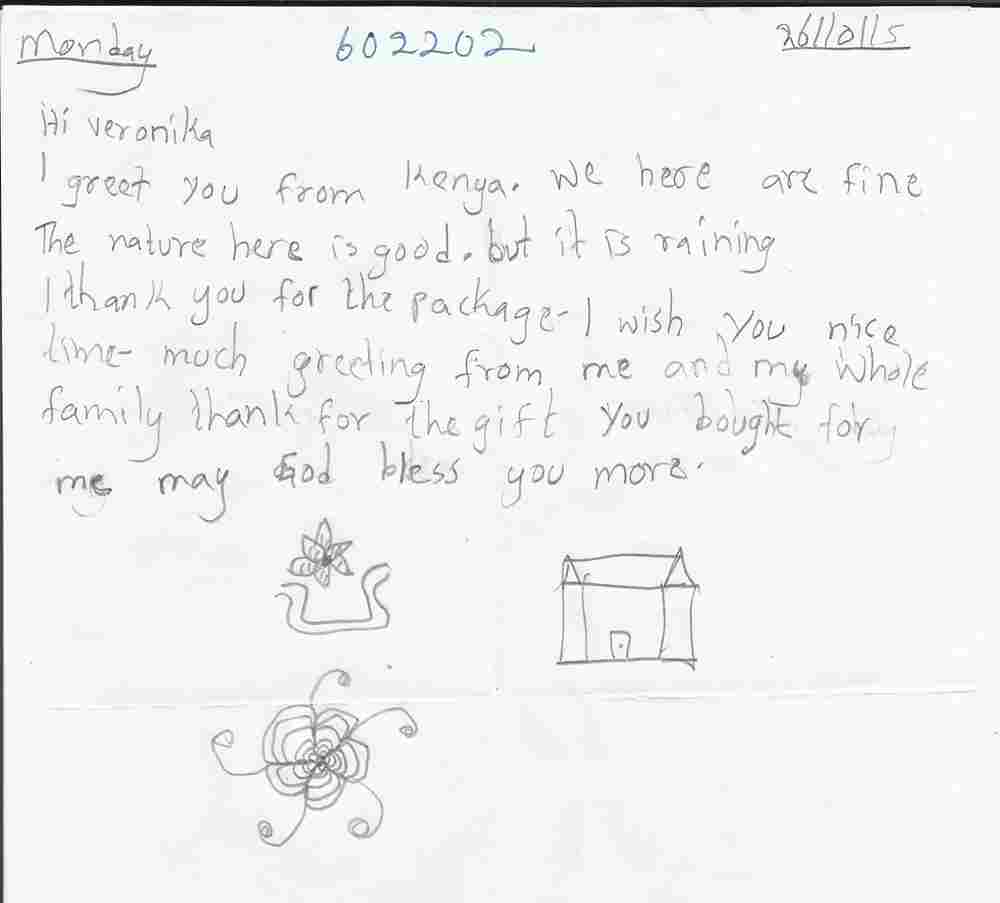 Monday 602202 26/10/15
Hi veronika
I greet you from Kenya. We here are fine
The nature here is good. but it is raining
I thank you for the package - I wish you nice
time - much greeting from me and my whole
family thank for the gift you bought for
me may God bless you more.